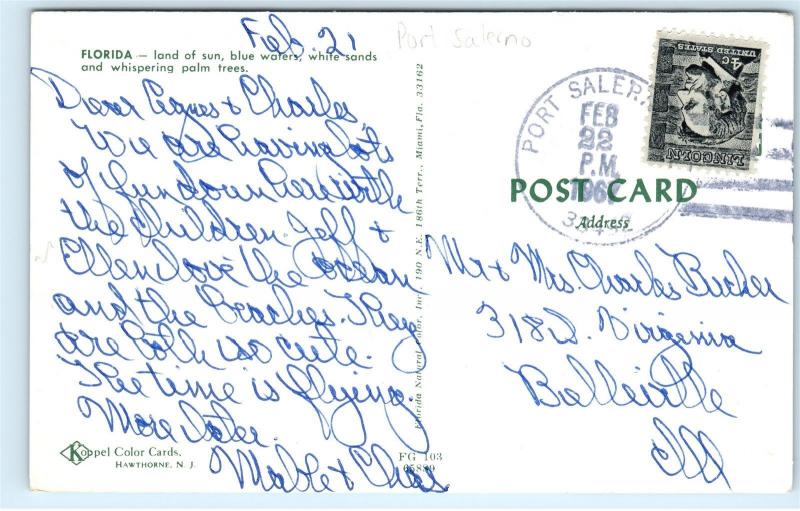 Feb. 21
Port Salerno
FLORIDA — land of sun, blue waters, white sands
and whispering palm trees.
Dear Agnes & Charles,
We are having lots
of fun down here with
the children. Jeff &
Ellen love the ocean
and the beaches. They
are both so cute.
The time is flying.
More later.
Mable & Chas
Koppel Color Cards.
HAWTHORNE, N. J.
FG 103
65889
Florida Natural Color, Inc., 190 N.E. 186th Terr., Miami, Fla. 33162
PORT SALER
FEB
22
P.M.
4c
UNITED STATES
LINCOLN
POST CARD
Address
Mr & Mrs. Charles Bucher
318 S. Virginia
Belleville
Ill